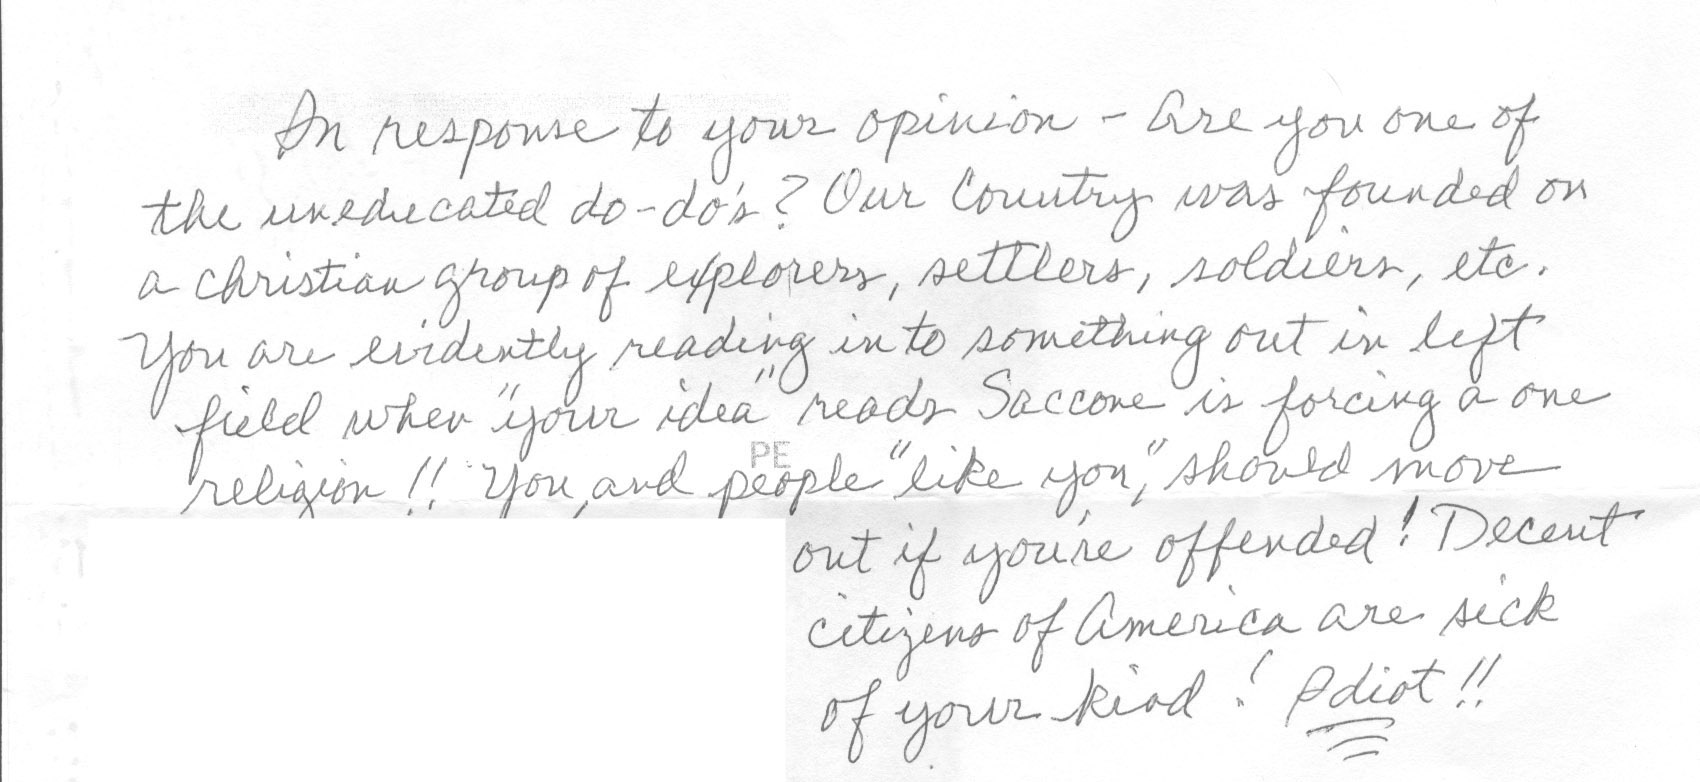 In response to your opinion - Are you one of
the uneducated do-do's? Our Country was founded on
a christian group of explorers, settlers, soldiers, etc.
You are evidently reading into something out in left
field when "your idea" reads Saccone is forcing a one
religion!! You, and people "like you," should move
PE
out if you're offended! Decent
citizens of America are sick
of your kind! Idiot!!